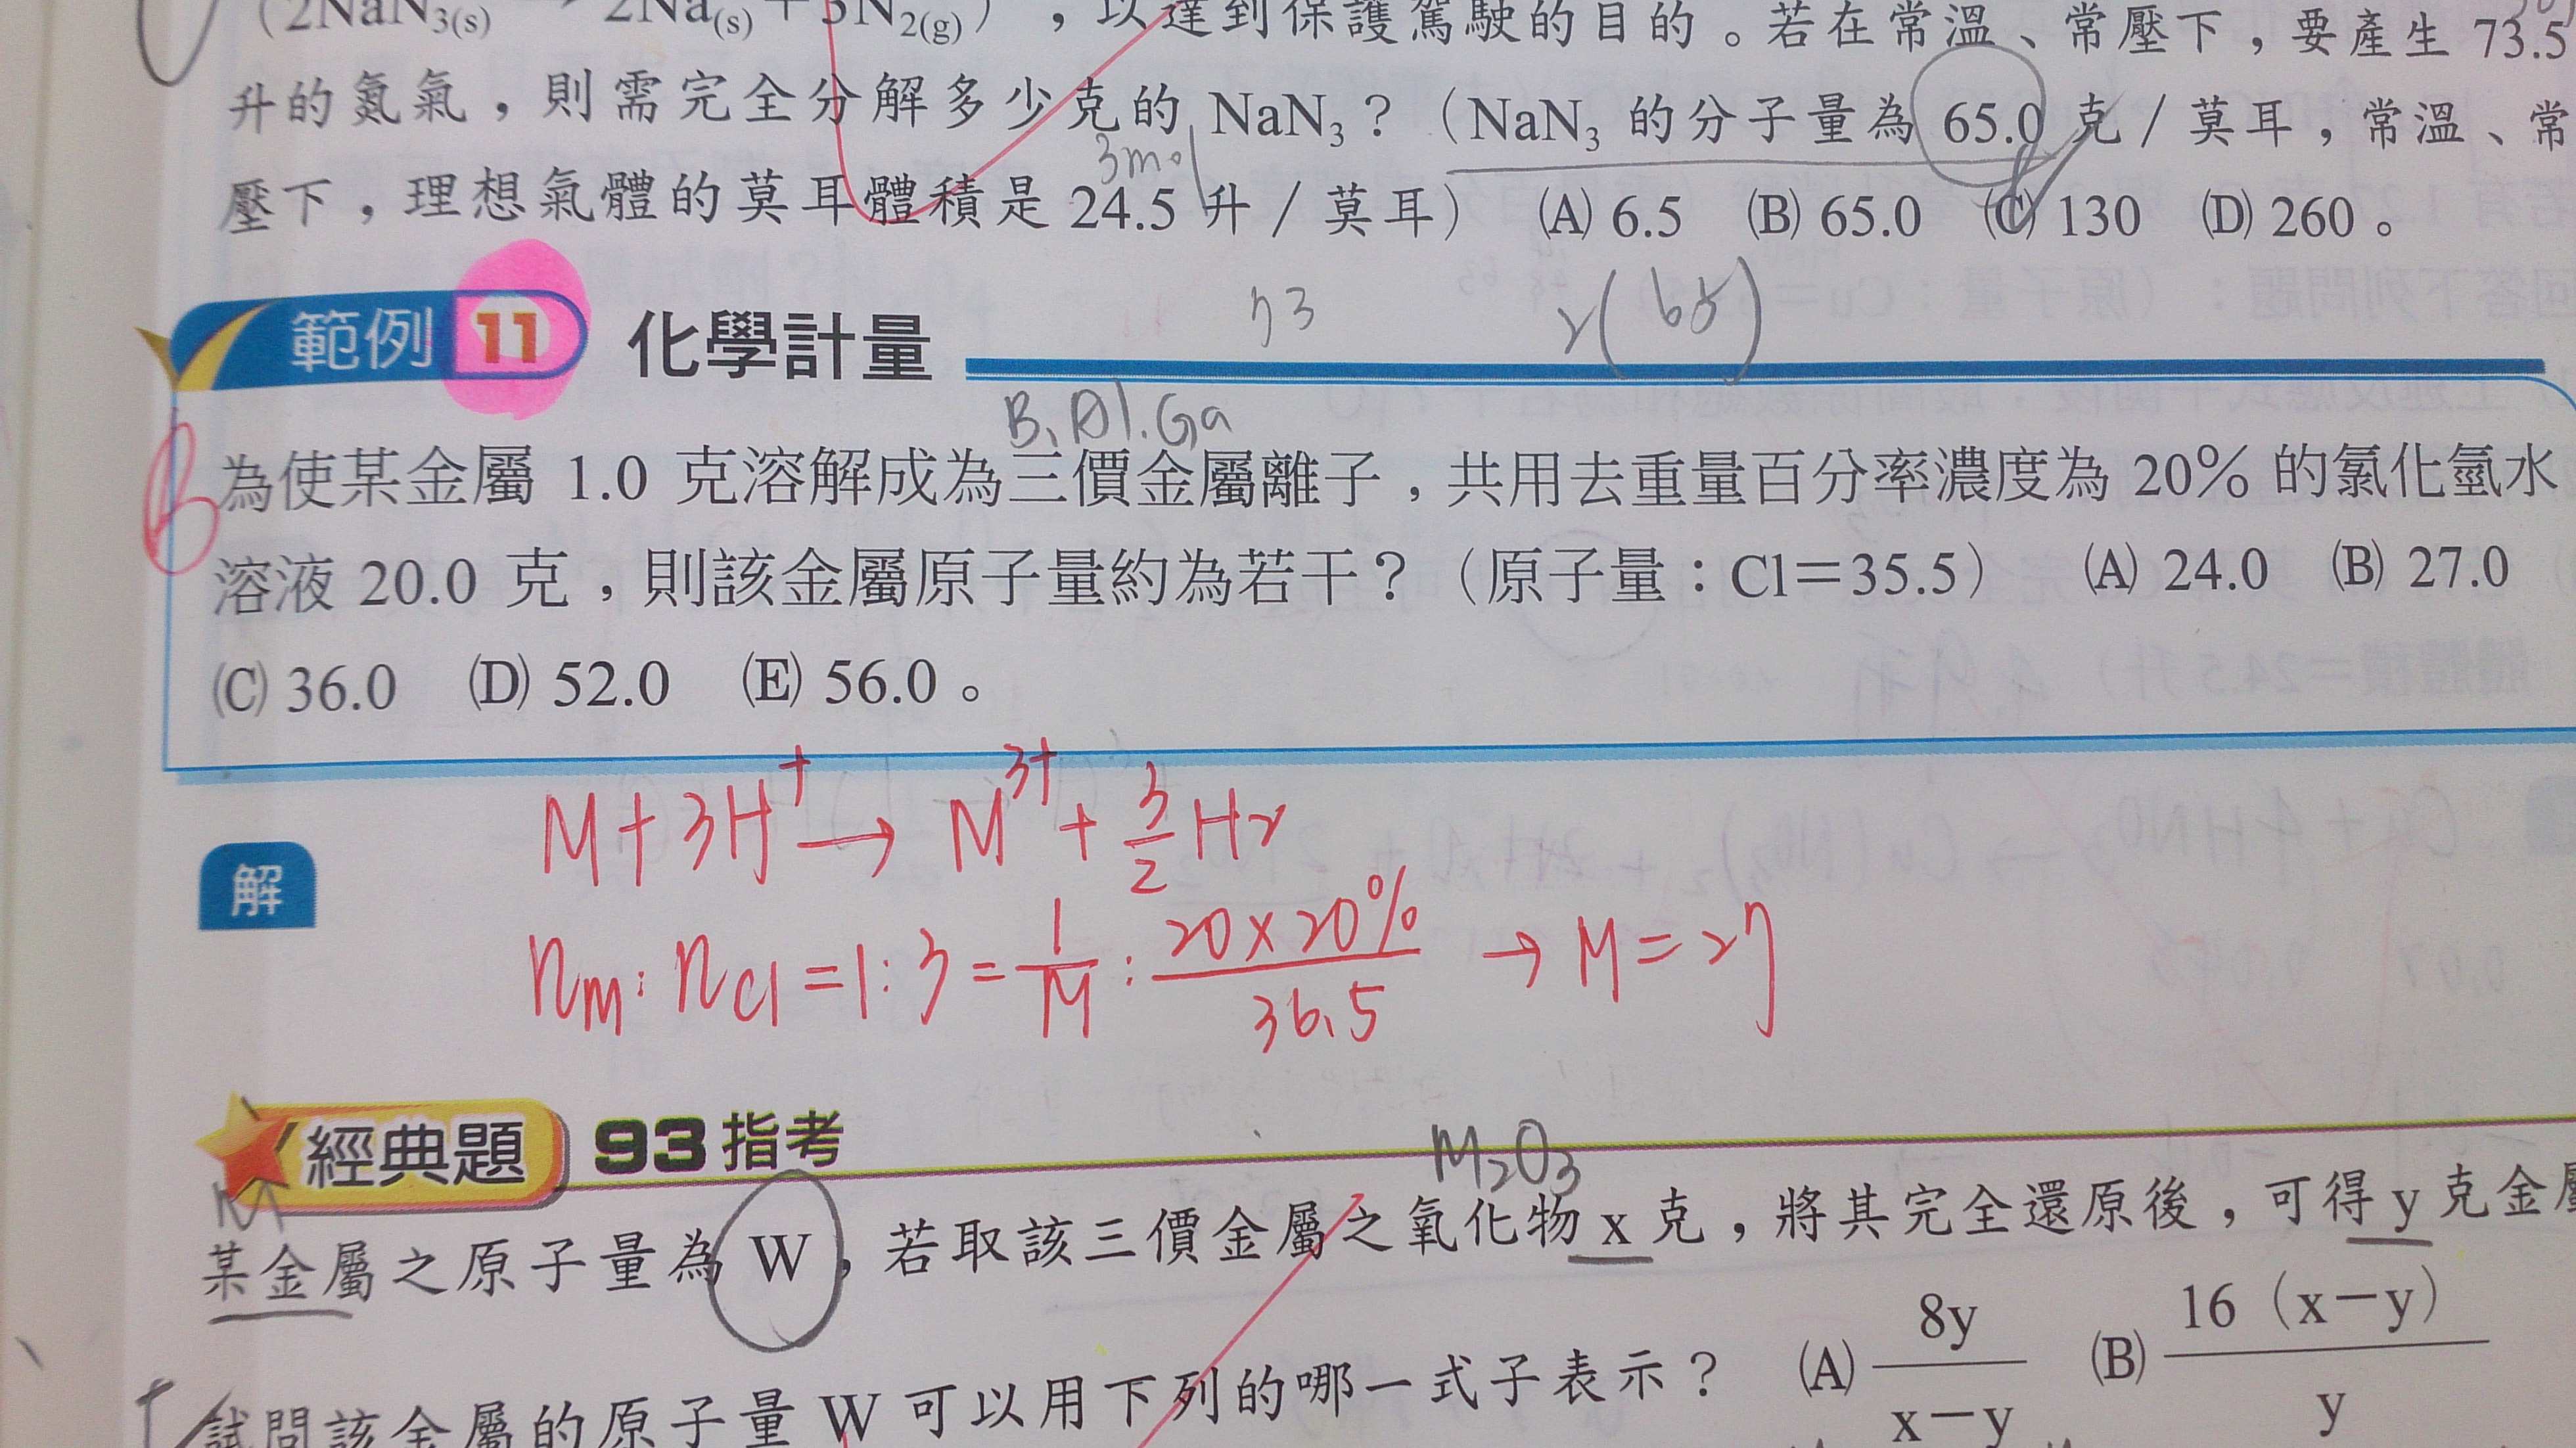 (2NaN3(s) → 2Na(s)+3N2(g)),以達到保護駕駛的目的。若在常溫、常壓下,要產生 73.5
升的氮氣,則需完全分解多少克的 NaN3?(NaN3 的分子量為 65.0 克/莫耳,常溫、常
3mol
壓下,理想氣體的莫耳體積是 24.5 升/莫耳) (A) 6.5 (B) 65.0 (C) 130 (D) 260。
範例 11 化學計量
B. Al. Ga
B
為使某金屬 1.0 克溶解成為三價金屬離子,共用去重量百分率濃度為 20% 的氯化氫水
溶液 20.0 克,則該金屬原子量約為若干?(原子量:Cl=35.5) (A) 24.0 (B) 27.0
(C) 36.0 (D) 52.0 (E) 56.0。
M+3H⁺→ M³⁺+3/2 H2
解
nM:nCl=1:3=1/M:20×20%/36.5 → M=27
經典題 93指考
M2O3
某金屬之原子量為 W,若取該三價金屬之氧化物 x 克,將其完全還原後,可得 y 克金屬
試問該金屬的原子量 W 可以用下列的哪一式子表示? (A) 8y/x−y (B) 16(x−y)/y